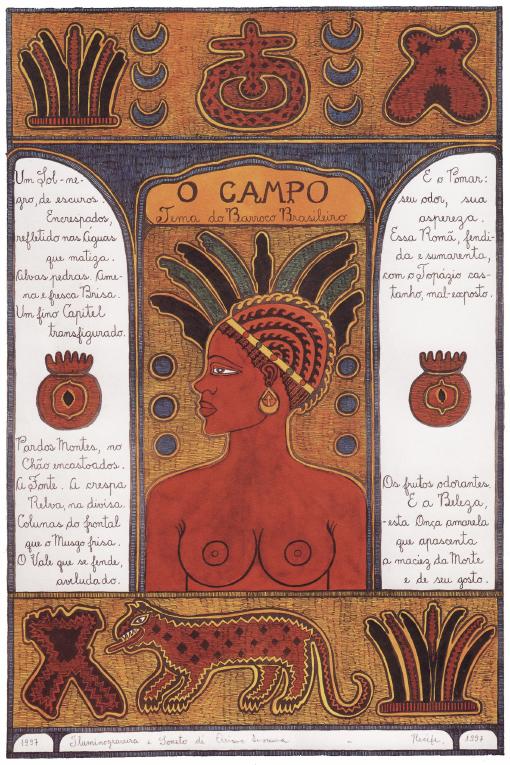 O CAMPO
Tema do Barroco Brasileiro
Um Sol-ne-
gro, de escuros.
Encrespados,
refletido nas Águas
que matiza.
Alvas pedras. Ame-
na e fresca Brisa.
Um fino Capitel
transfigurado.
Pardos Montes, no
Chão encastoados.
A Fonte. A crespa
Relva, na divisa.
Colunas do frontal
que o Musgo frisa.
O Vale que se fende,
aveludado.
E o Pomar:
seu odor, sua
aspereza.
Essa Romã, fendi-
da e sumarenta,
com o Topázio cas-
tanho, mal-exposto.
Os frutos odorantes.
E a Beleza,
-esta Onça amarela
que apascenta
a maciez da Morte
e de seu gosto.
1997
Iluminogravura e Soneto de
-
Recife,
1997